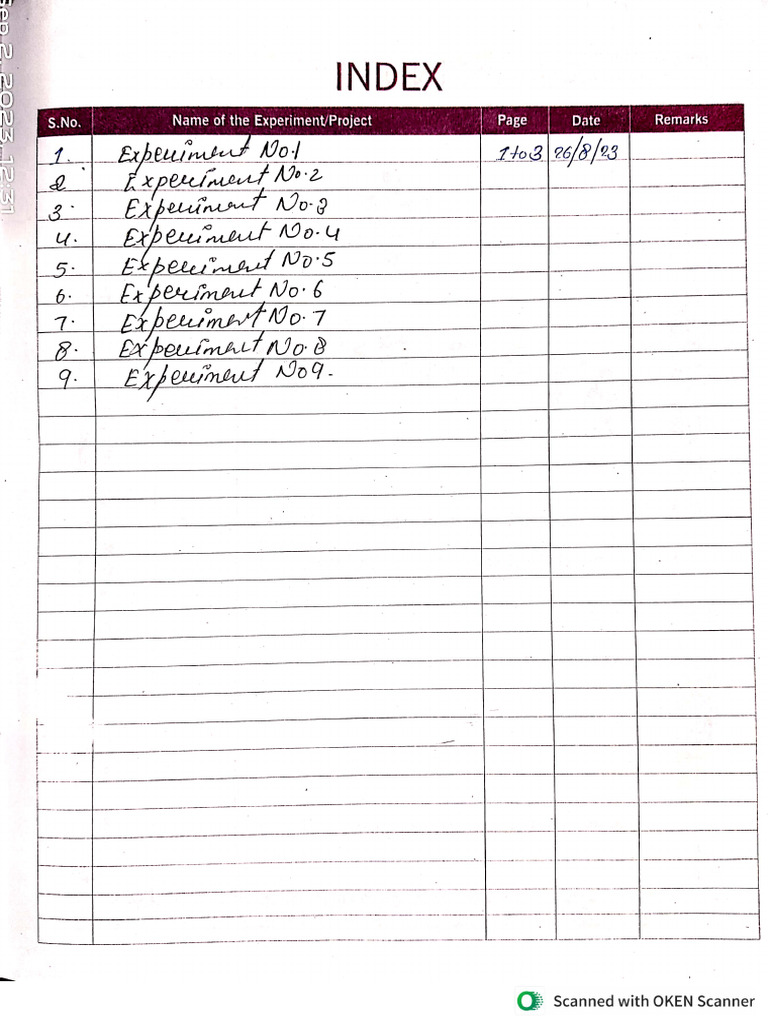 Sep 2, 2023, 12:31
INDEX
S.No. Name of the Experiment/Project Page Date Remarks
1. Experiment No.1 1 to 3 26/8/23
2 Experiment No.2
3. Experiment No.3
4. Experiment No.4
5. Experiment No.5
6. Experiment No.6
7. Experiment No.7
8. Experiment No.8
9. Experiment No 9.
Scanned with OKEN Scanner